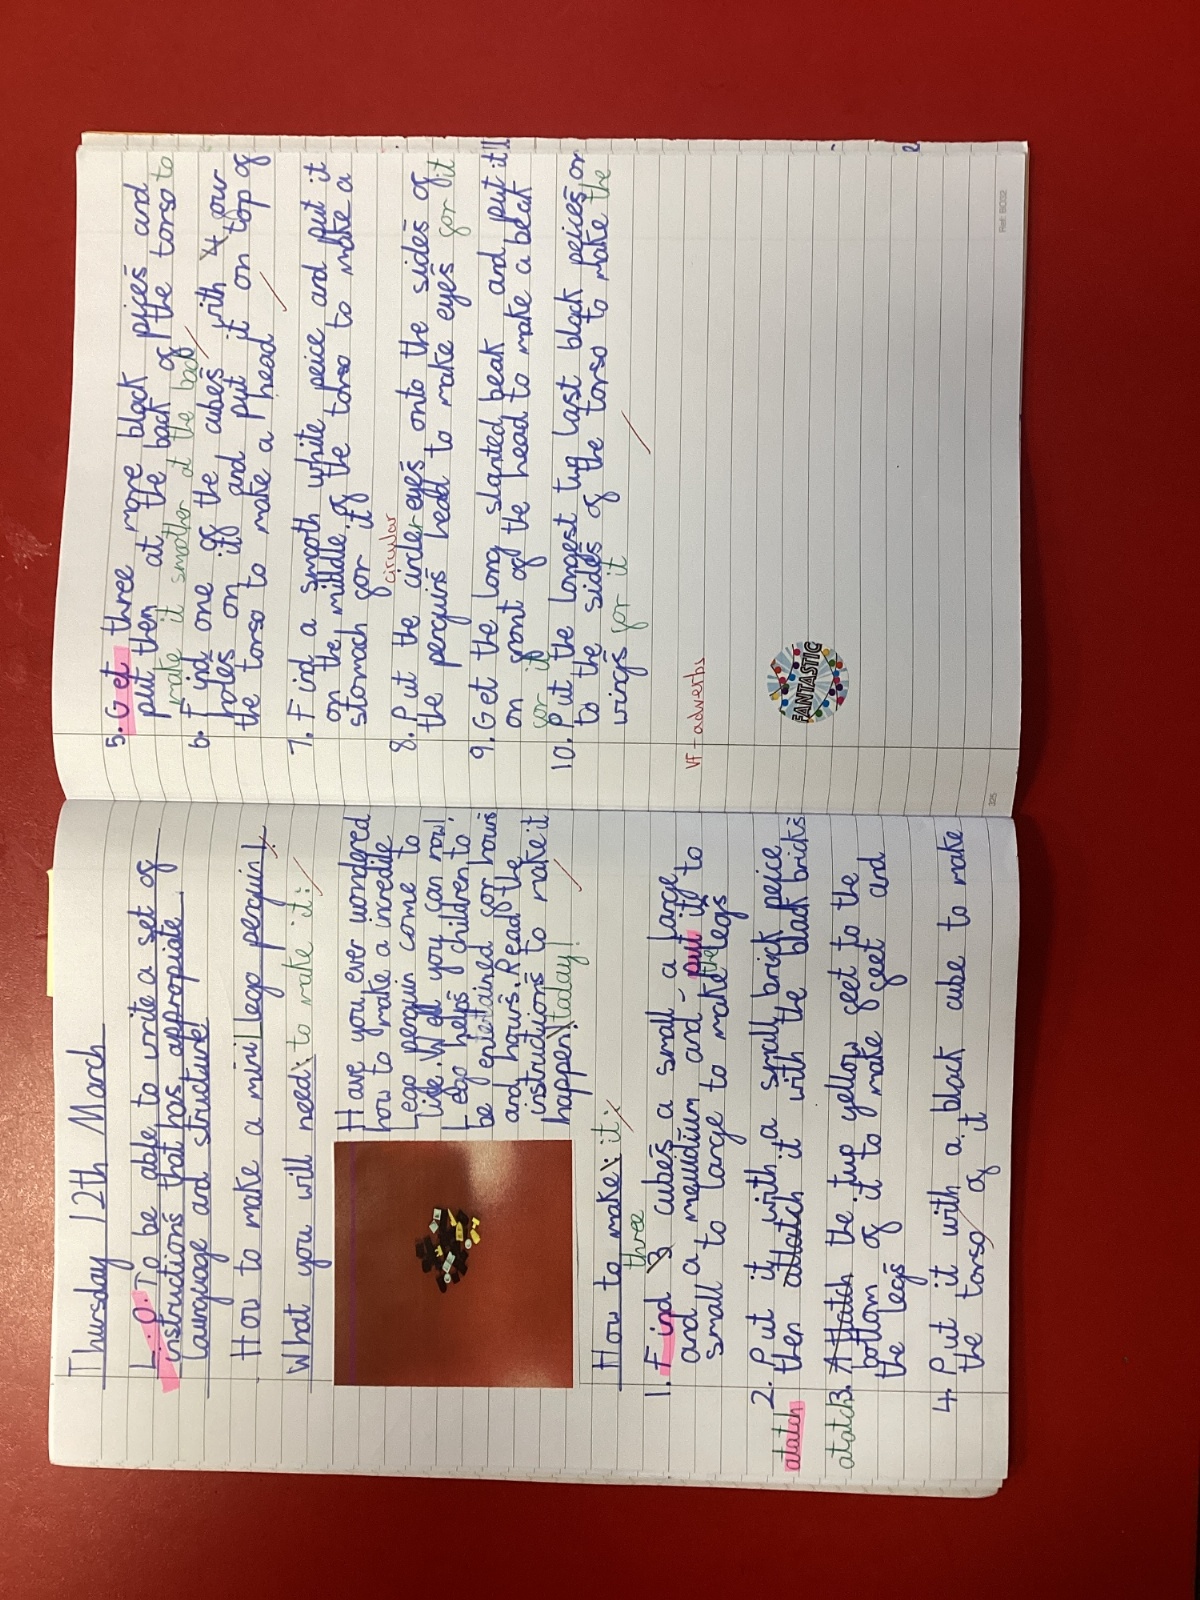 Thursday 12th March
L.O. To be able to write a set of
instructions that has appropiate
language and structure!
How to make a mini lego penguin!
What you will need: to make it:
Have you ever wondered
how to make a incredible
Lego penguin come to
life. Well you can now!
Lego helps children to
be entertained for hours
and hours. Read the
instructions to make it
happen today!
How to make: it:
three
1. Find 3 cubes a small a large
and a meuidium and - put it to
small to large to make the legs
2. Put it with a small brick peice
then attatch it with the black bricks
atatch
atatch 3. Attatch the two yellow feet to the
bottom of it to make feet and
the legs
4. Put it with a black cube to make
the torso of it
5. Get three more black pices and
put them at the back of the torso to
make it smother at the back
6. Find one of the cubes with 4 our
holes on it and put it on top of
the torso to make a head
7. Find a smooth white peice and put it
on the middle of the torso to make a
stomach for it
circular
8. Put the circler eyes onto the sides of
the penguins head to make eyes for it
9. Get the long slanted beak and put it
on front of the head to make a beak
for it
10. Put the longest two last black peices on
to the sides of the torso to make the
wings for it
VF - adverbs
FANTASTIC
325
Ref: BC032